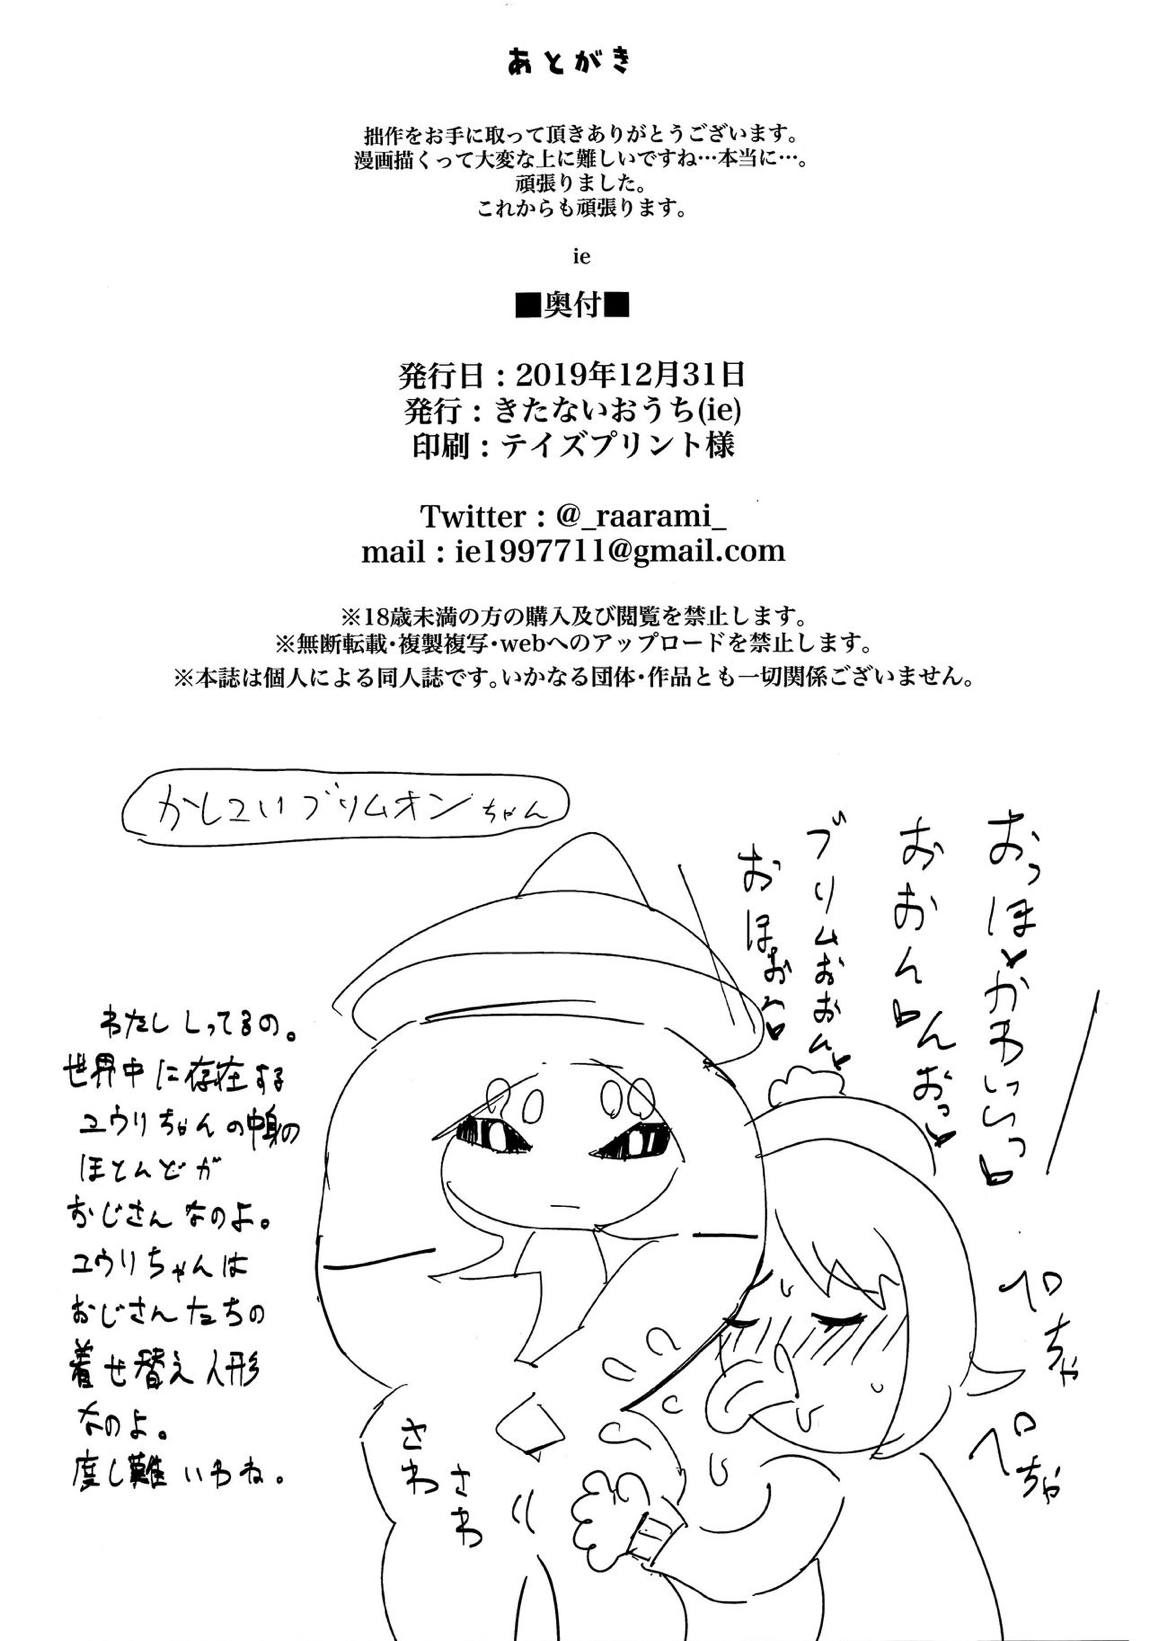 あとがき
拙作をお手に取って頂きありがとうございます。
漫画描くって大変な上に難しいですね…本当に…。
頑張りました。
これからも頑張ります。
ie
■奥付■
発行日：2019年12月31日
発行：きたないおうち(ie)
印刷：テイズプリント様
Twitter：@_raarami_
mail：ie1997711@gmail.com
※18歳未満の方の購入及び閲覧を禁止します。
※無断転載・複製複写・webへのアップロードを禁止します。
※本誌は個人による同人誌です。いかなる団体・作品とも一切関係ございません。
かしこいブリムオンちゃん
おっほ♥かわいいっ♥
おおん♥んおっ♥
ブリムおおん♥
おほお♥
わたししってるの。
世界中に存在する
ユウリちゃんの中身の
ほとんどが
おじさんなのよ。
ユウリちゃんは
おじさんたちの
着せ替え人形
なのよ。
度し難いわね。
さわ
さわ
ペロちゃ
ペロちゃ